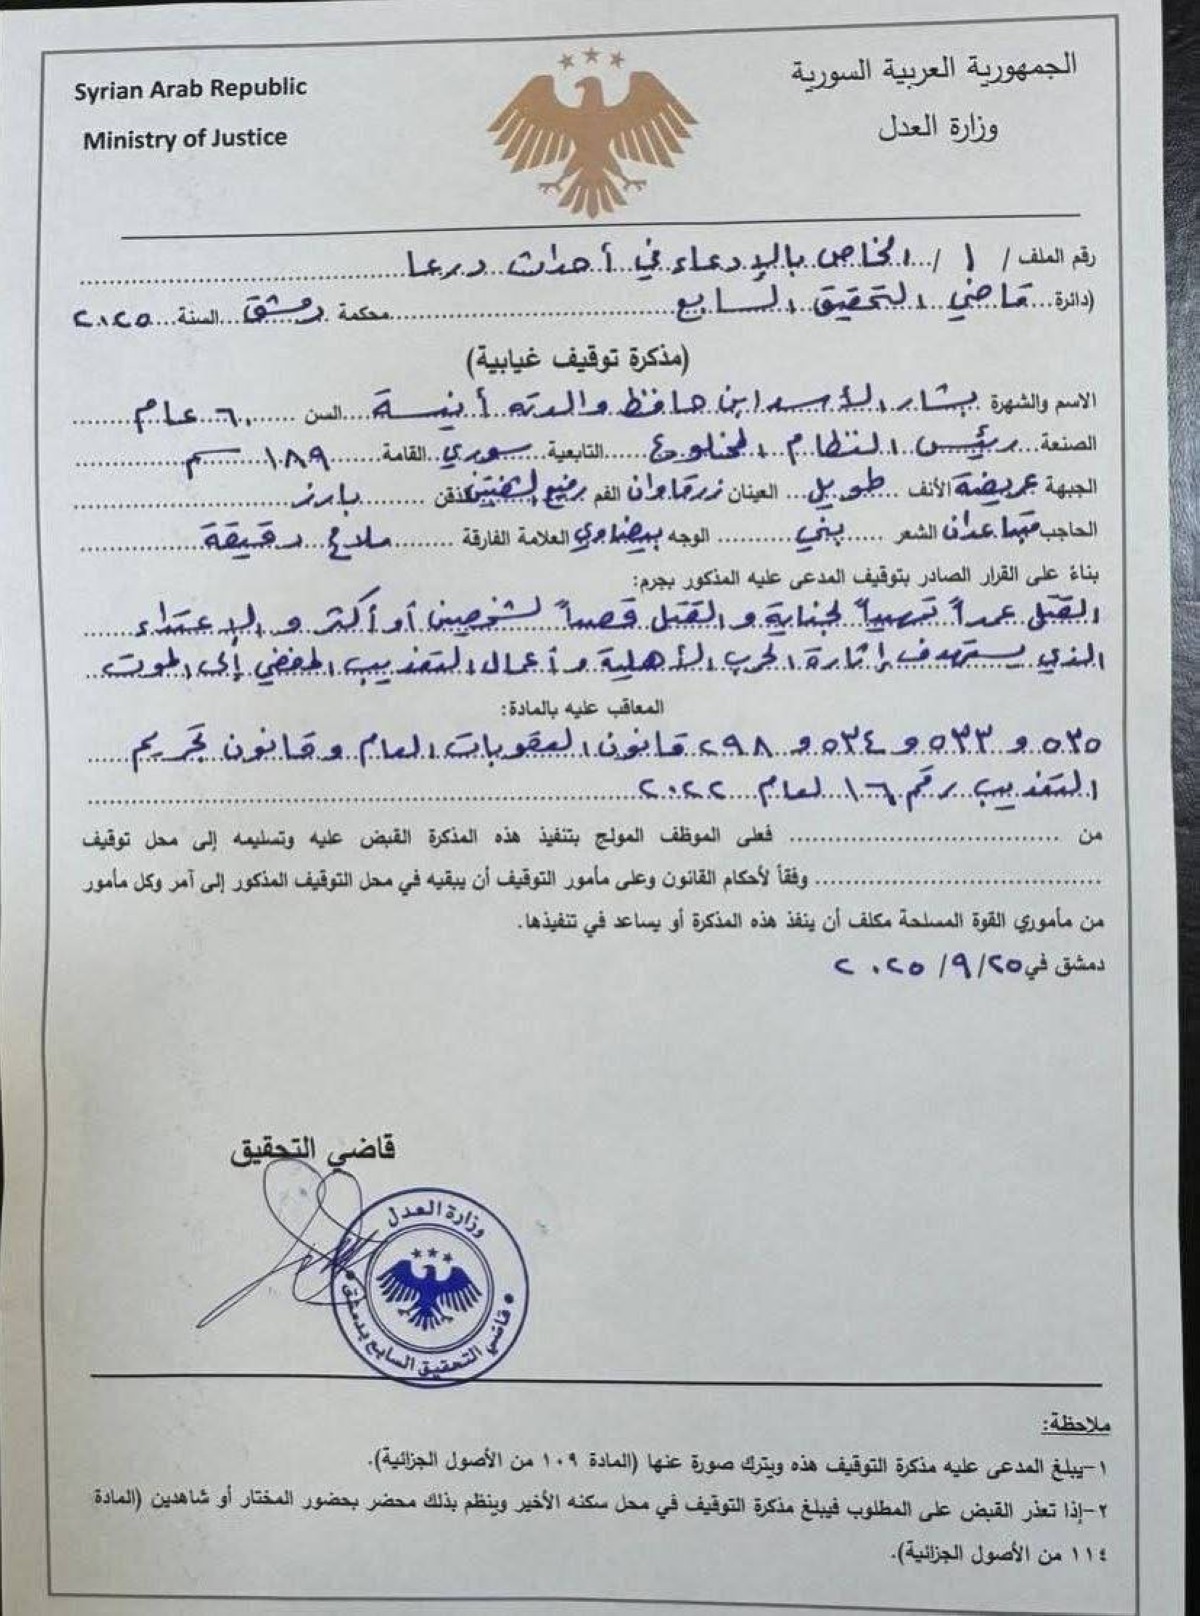 Syrian Arab Republic
Ministry of Justice
الجمهورية العربية السورية
وزارة العدل
رقم الملف / ١ / الخاص بالإدعاء في أحداث درعا
(دائرة قاضي التحقيق السابع محكمة دمشق السنة ٢٠٢٥
(مذكرة توقيف غيابية)
الاسم والشهرة بشار الأسد ابن حافظ والدته أنيسة السن ٦٠ عام
الصنعة رئيس النظام المخلوع التابعية سوري القامة ١٨٩ سم
الجبهة عريضة الأنف طويل العينان زرقاوان الفم رفيع الشفتين الذقن بارز
الحاجب متباعدان الشعر بني الوجه بيضاوي العلامة الفارقة ملامح دقيقة
بناءً على القرار الصادر بتوقيف المدعى عليه المذكور بجرم:
القتل عمداً تمهيداً لجناية و القتل قصداً لشخصين أو أكثر و الإعتداء
الذي يستهدف إثارة الحرب الأهلية و أعمال التعذيب المفضي إلى الموت
المعاقب عليه بالمادة:
٥٣٥ و ٥٣٣ و ٥٣٤ و ٢٩٨ قانون العقوبات العام و قانون تجريم
التعذيب رقم ١٦ لعام ٢٠٢٢
من فعلى الموظف المولج بتنفيذ هذه المذكرة القبض عليه وتسليمه إلى محل توقيف
وفقاً لأحكام القانون وعلى مأمور التوقيف أن يبقيه في محل التوقيف المذكور إلى آمر وكل مأمور
من مأموري القوة المسلحة مكلف أن ينفذ هذه المذكرة أو يساعد في تنفيذها.
دمشق في ٢٥/٩/٢٠٢٥
قاضي التحقيق
وزارة العدل
قاضي التحقيق السابع بدمشق
ملاحظة:
١-يبلغ المدعى عليه مذكرة التوقيف هذه ويترك صورة عنها (المادة ١٠٩ من الأصول الجزائية).
٢-إذا تعذر القبض على المطلوب فيبلغ مذكرة التوقيف في محل سكنه الأخير وينظم بذلك محضر بحضور المختار أو شاهدين (المادة
١١٤ من الأصول الجزائية).